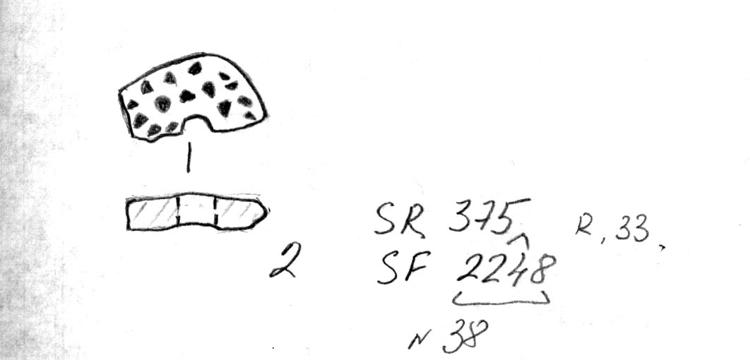 SR 375 R, 33.
2 SF 2248
N 38